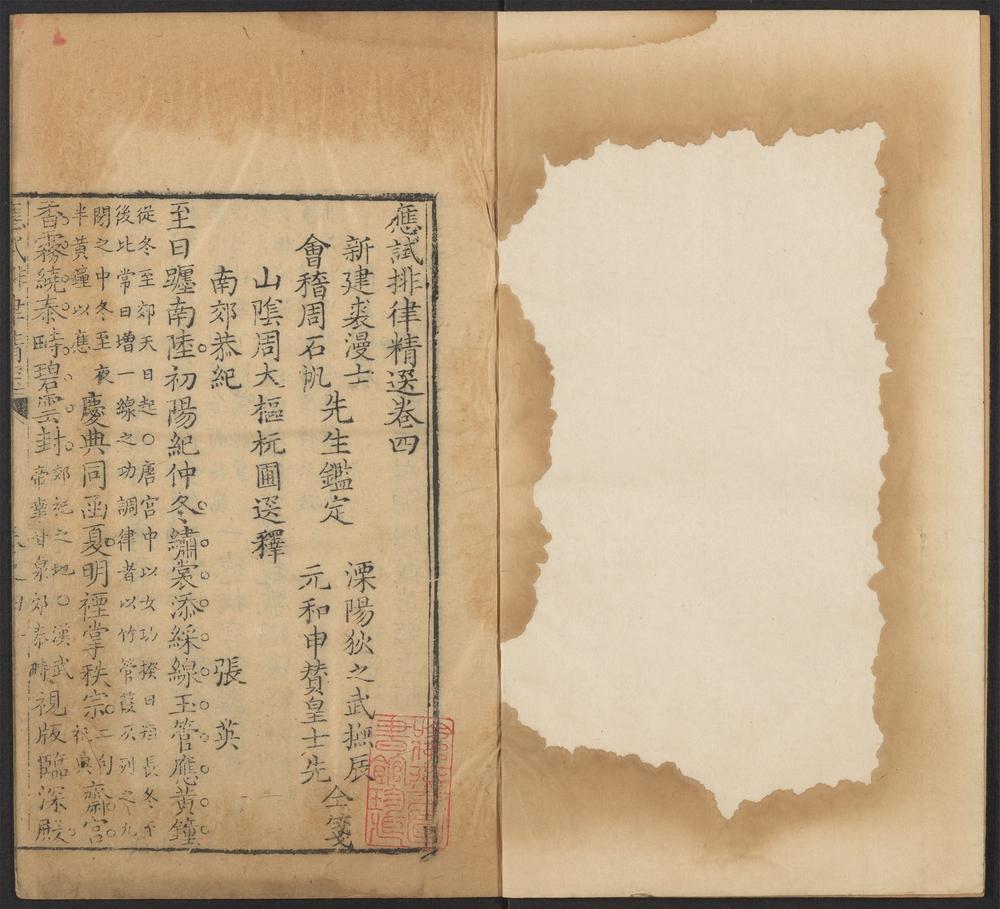 應試排律精選卷四
新建裘漫士
會稽周石帆
先生鑑定
溧陽狄之武撫辰
元和申贊皇士先
仝箋
山陰周大樞杬圃選釋
南郊恭紀
張英
至日躔南陸初陽紀仲冬繡裳添綵線玉管應黃鐘
從冬至郊天日起○唐宮中以女功揆日
後比常日增一線之功調律者以竹管葭灰列之九
閉之中冬至夜
半黃鐘以應
慶典同函夏明禋掌秩宗
齋宮
香霧繞泰畤碧雲封
郊祀之地○漢武
帝華甘泉郊泰畤
視版臨深殿